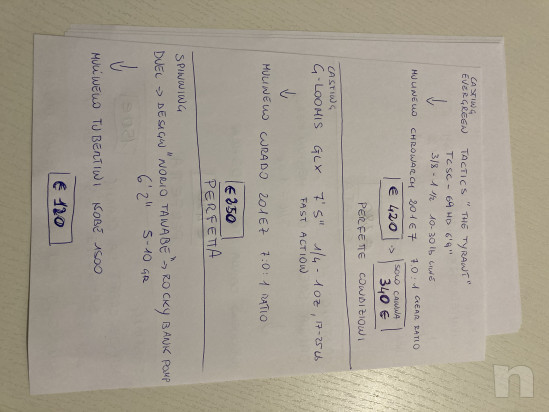 CASTING
EVERGREEN TACTICS "THE TYRANT"
TCSC - 69HD 6'9"
3/8 - 1 1/2 10-30 lb LINE
↓
MULINELLO CHRONARCH 201E7 7.0:1 GEAR RATIO
€ 420 → SOLO CANNA 340 €
PERFETTE CONDIZIONI
CASTING
G-LOOMIS GLX 7'5" 1/4 - 1 OZ, 17-25 lb
FAST ACTION
↓
MULINELLO CURADO 201E7 7.0:1 RATIO
€ 250
PERFETTA
SPINNING
DUEL → DESIGN "NORIO TANABE" → ROCKY BANK PUMP
6'2" 5-10 GR
↓
MULINELLO TUBERTINI KOBÈ 1500
€ 120
n